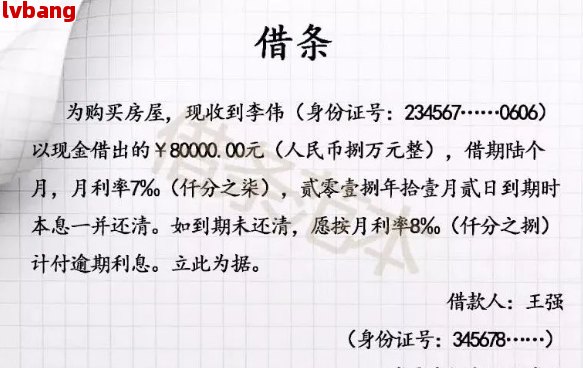 lvbang
借条
为购买房屋，现收到李伟（身份证号：234567……0606）
以现金借出的￥80000.00元（人民币捌万元整），借期陆个
月，月利率7‰（仟分之柒），贰零壹捌年拾壹月贰日到期时
本息一并还清。如到期未还清，愿按月利率8‰（仟分之捌）
计付逾期利息。立此为据。
借款人：王强
（身份证号：345678……）
借条范本